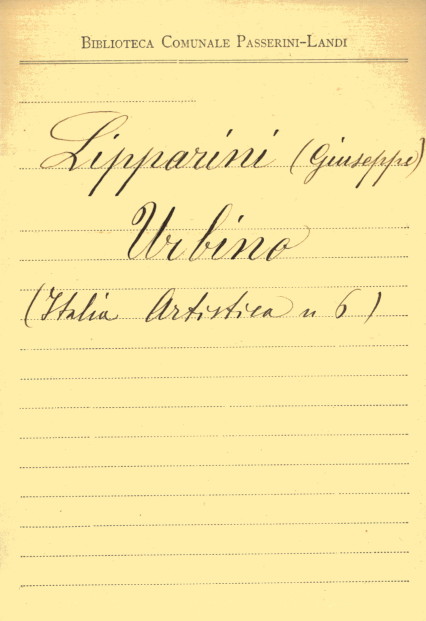 Biblioteca Comunale Passerini-Landi
Lipparini (Giuseppe)
Urbino
(Italia Artistica n 6)